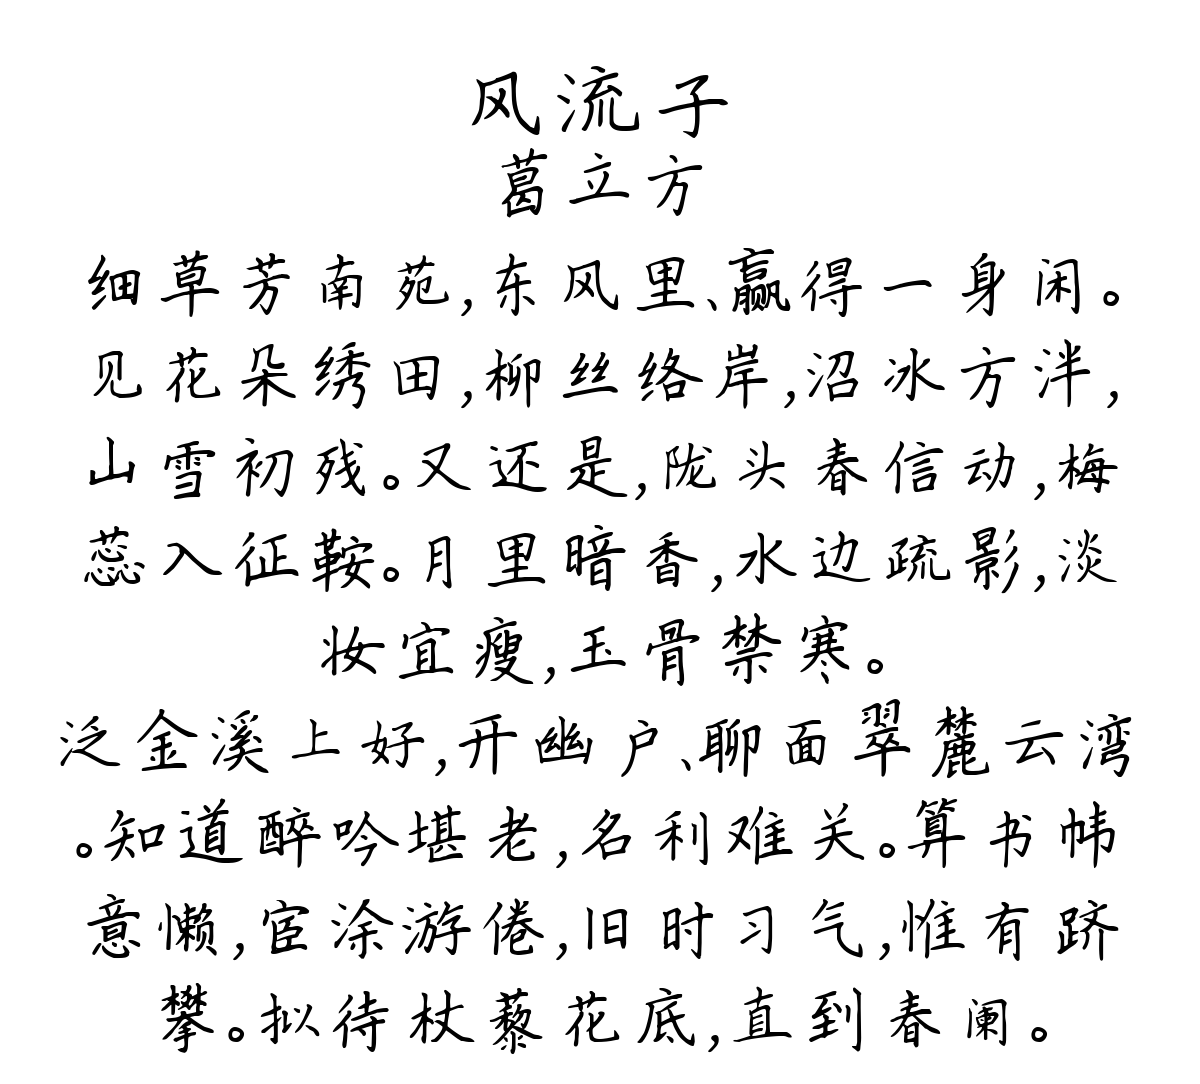 风流子
葛立方
细草芳南苑,东风里、赢得一身闲。
见花朵绣田,柳丝络岸,沼冰方泮,
山雪初残。又还是,陇头春信动,梅
蕊入征鞍。月里暗香,水边疏影,淡
妆宜瘦,玉骨禁寒。
泛金溪上好,开幽户、聊面翠麓云湾
。知道醉吟堪老,名利难关。算书帏
意懒,宦涂游倦,旧时习气,惟有跻
攀。拟待杖藜花底,直到春阑。